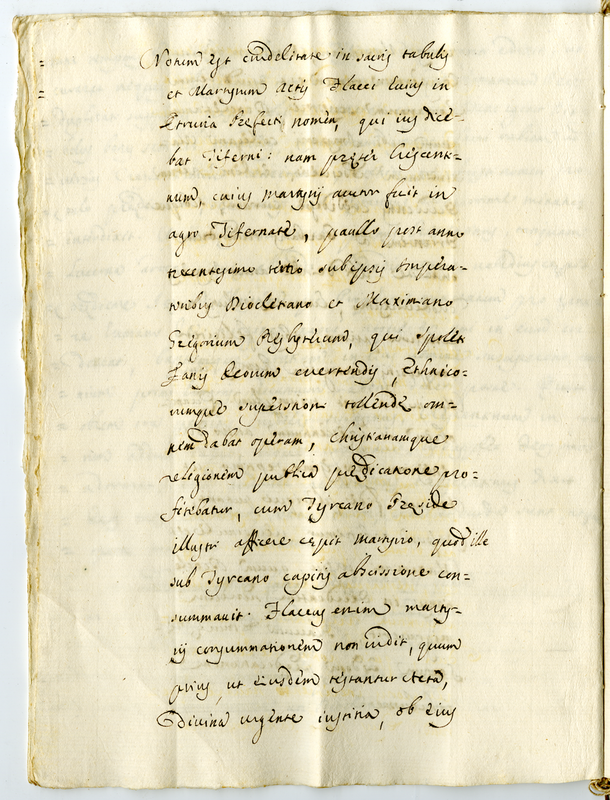 Notum est crudelitate in sacris tabulis
et Martyrum actis Flacci huius in
Etruria Prefecti nomen, qui ius dice-
bat Tiferni: nam preter Crescenti-
num, cuius martyrij auctor fuit in
agro Tifernate, paullo post anno
trecentesimo tertio sub ipsis Impera-
toribus Diocletiano et Maximiano
Gregorium Presbyterum, qui Spoleti
Fanis Deorum evertendis, Ethnico-
rumque superstitioni tollende om-
nem dabat operam, Christianamque
religionem publica predicatione pro-
fitebatur, cum Tyrcano Preside
illustri afficere cepit martyrio, quod ille
sub Tyrcano capitis abscissione con-
summavit. Flaccus enim marty-
rij consummationem non vidit, quum
prius, ut eiusdem testantur Acta,
Divina urgente iustitia, ob eius